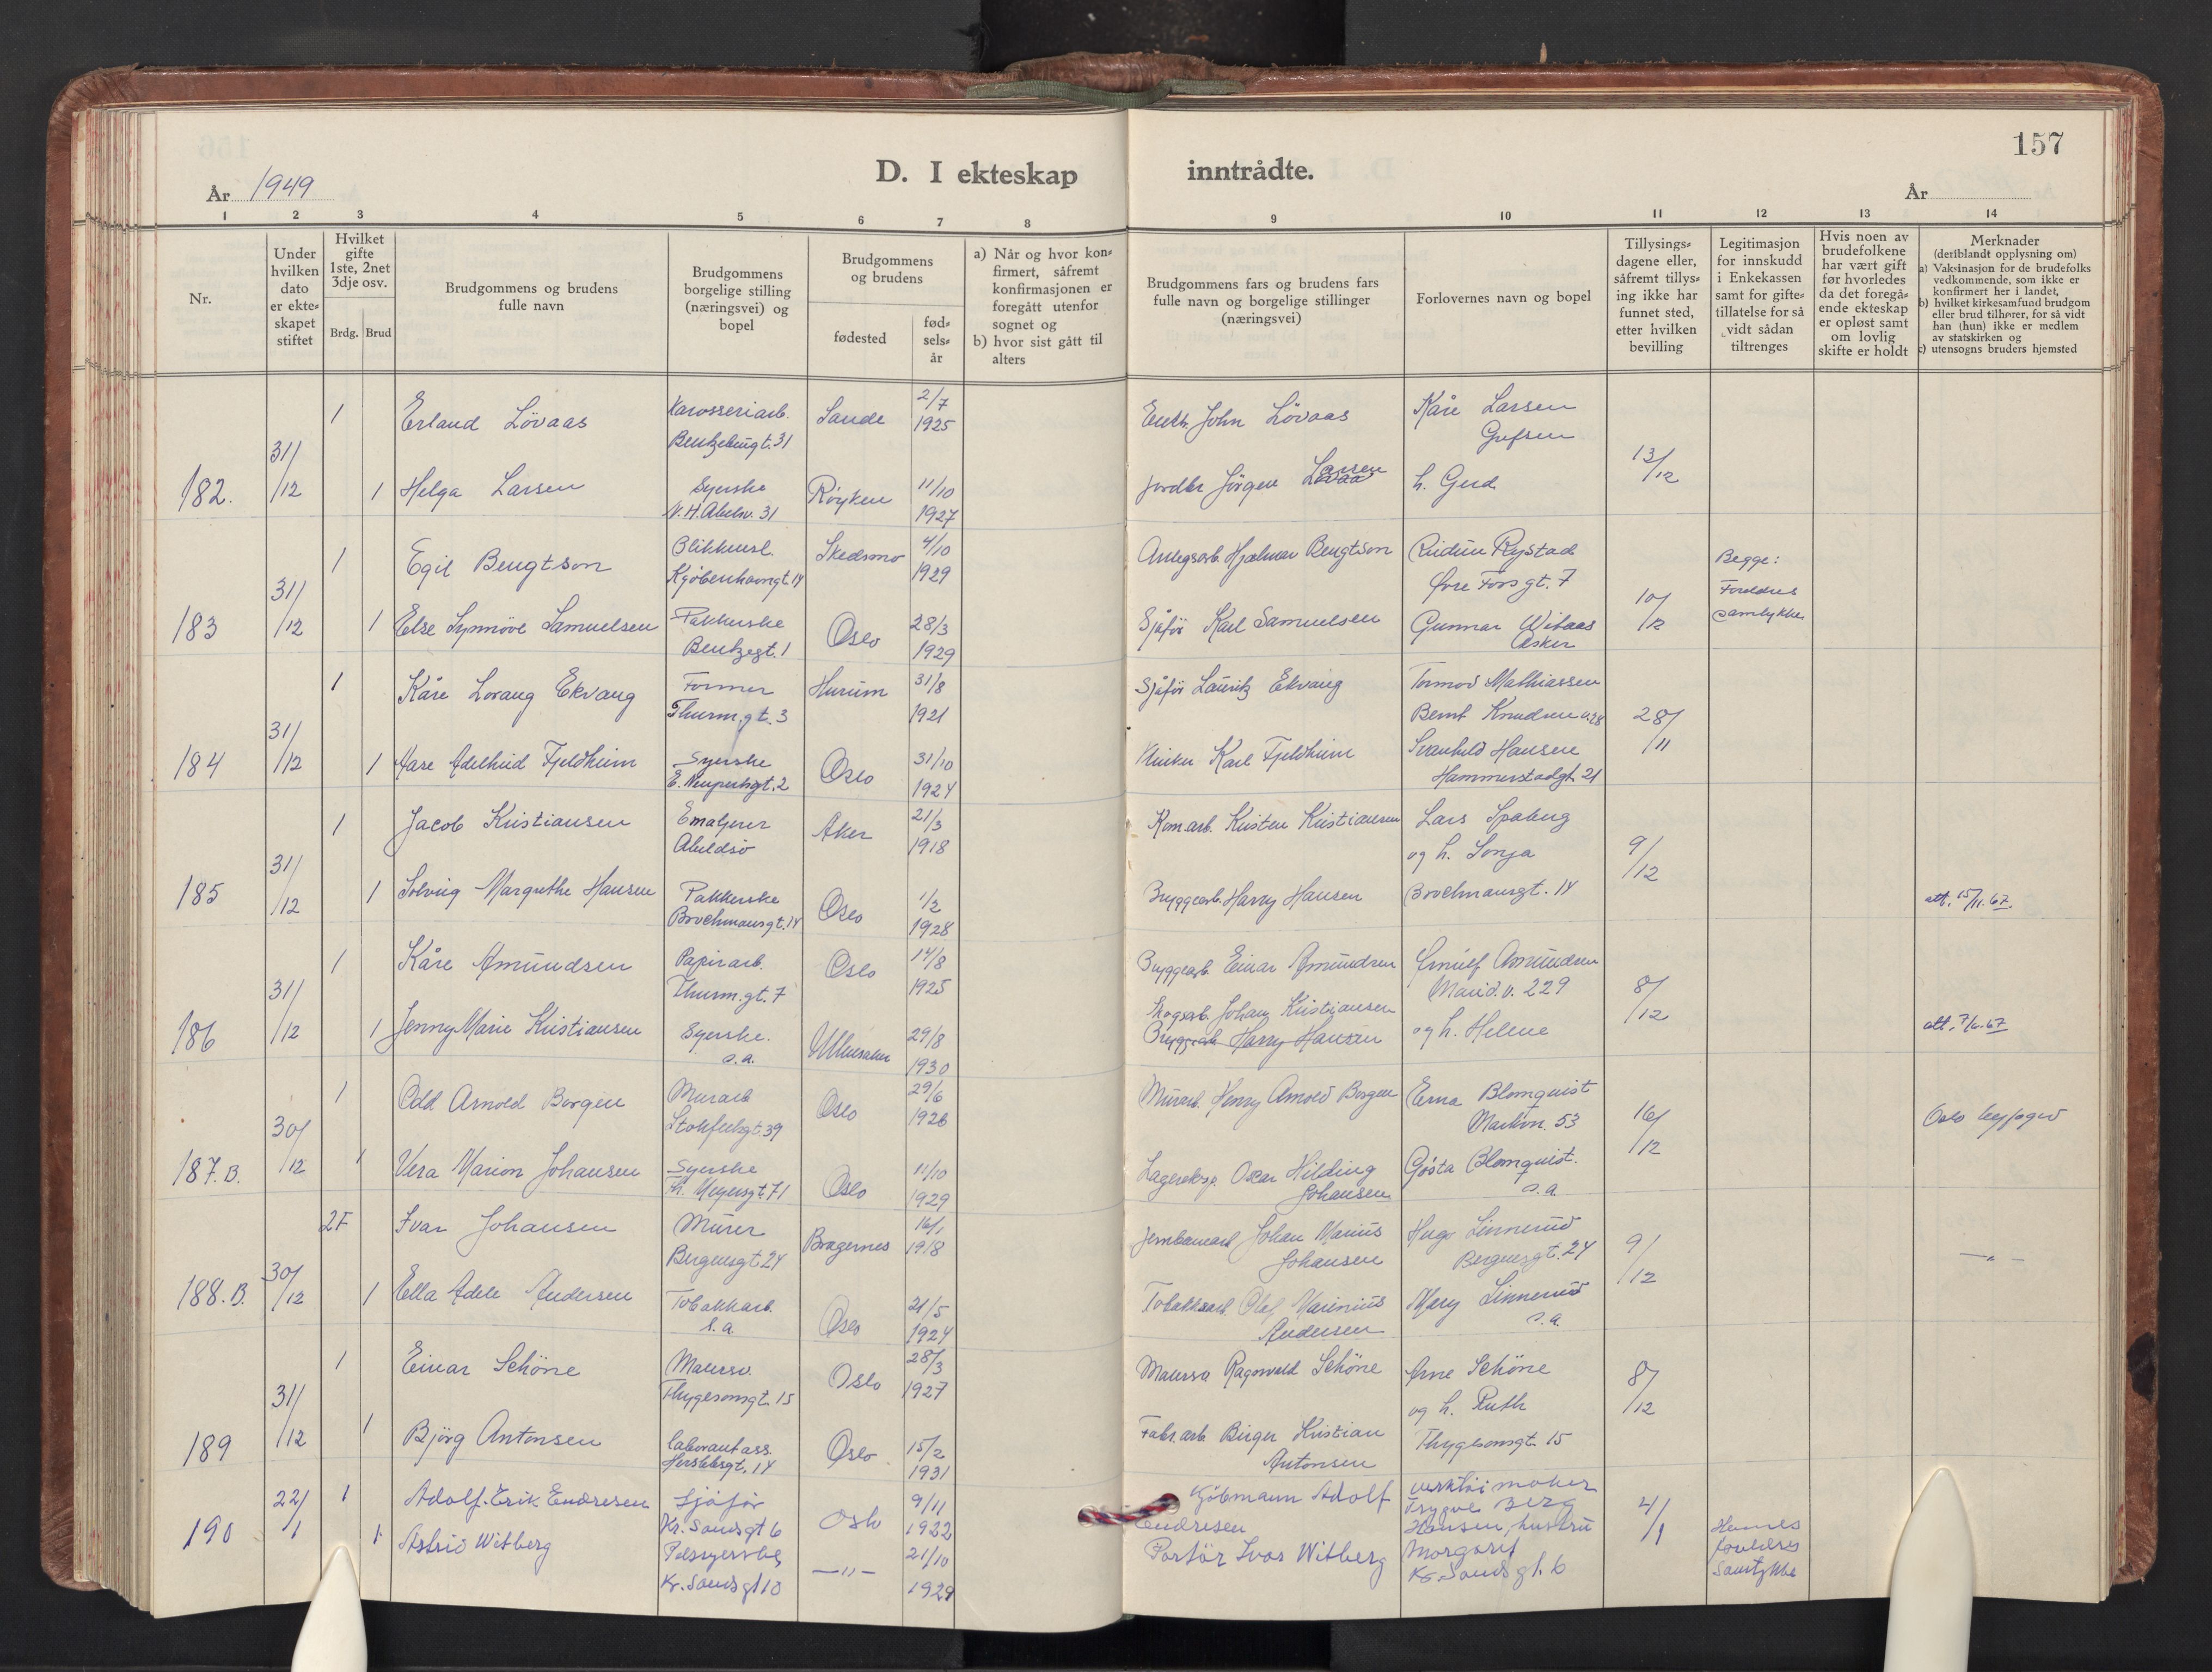 157
D. I ekteskap inntrådte.
År 1949
År
1 2 3 4 5 6 7 8 9 10 11 12 13 14
Nr.
Under hvilken dato er ekte= skapet stiftet
Hvilket gifte 1ste, 2net 3dje osv.
Brdg. Brud
Brudgommens og brudens fulle navn
Brudgommens borgelige stilling (næringsvei) og bopel
Brudgommens og brudens
fødested
fød= sels= år
a) Når og hvor kon= firmert, såfremt konfirmasjonen er foregått utenfor sognet og
b) hvor sist gått til alters
Brudgommens fars og brudens fars fulle navn og borgelige stillinger (næringsvei)
Forlovernes navn og bopel
Tillysings= dagene eller, såfremt tillys= ing ikke har funnet sted, etter hvilken bevilling
Legitimasjon for innskudd i Enkekassen samt for gifte= tillatelse for så vidt sådan tiltrenges
Hvis noen av brudefolkene har vært gift før hvorledes da det foregå= ende ekteskap er opløst samt om lovlig skifte er holdt
Merknader
(deriblandt opplysning om)
a) Vaksinasjon for de brudefolks vedkommende, som ikke er konfirmert her i landet,
b) hvilket kirkesamfund brudgom eller brud tilhører, for så vidt han (hun) ikke er medlem av statskirken og
c) utensogns bruders hjemsted
1 Erland Lövaas Karosseriarb. Sande 2/7 1925 John Lövaas Kåre Larsen
Bentzebrugt. 31 Grefsen
182. 31/12 1 Helga Larsen Syerske Röyken 11/10 1927 Jørgen Larsen h. Gerd 13/12
N. H. Abelsv. 31
1 Egil Bengtson Blikkensl. Skedsmo 4/10 1929 Anlegsarb. Hjalmar Bengtson Rystad Begge:
Kjöbenhavngt. 14 Øvre Fossgt. 7 Foreldres
183 31/12 1 Else Synnöve Samuelsen Pakkerske Oslo 28/3 1929 Sjåför Karl Samuelsen Gunnar 10/12 samtykke
Bentzegt. 1 Asker
1 Kåre Lorang Ekvang Former Hurum 31/8 1921 Sjåför Lauritz Ekvang Tormod Mathiassen
Thurm.gt. 3 Bernt Knudsens v. 28 28/11
184 31/12 1 Aase Adelheid Fjeldheim Syerske Oslo 31/10 1924 Karl Fjeldheim Svanhild Hansen
E. Neupertsgt. 2 Hammerstadgt 21
1 Jacob Kristiansen Emaljerer Aker 21/3 1918 Kom.arb. Kristen Kristiansen Lars Spaberg
Abeldsö og h. Sonja 9/12
185 31/12 1 Solveig Margrethe Hansen Pakkerske Oslo 1/2 1928 Bryggearb. Harry Hansen Brochmansgt. 14 att. 15/11.67.
Brochmansgt. 14
1 Kåre Amundsen Papirarb. Oslo 14/8 1925 Bryggearb. Einar Amundsen Arnulf Amundsen
Thurm.gt. 7 Marid.v. 229
Skogsarb. Johan Kristiansen
186 31/12 1 Jenny Marie Kristiansen Syerske. Ullensaker 29/8 1930 Bryggearb. Harry Hansen og h. Helene 8/12
s.a.
1 Odd Arnold Borgen Murarb Oslo 29/6 1926 Murarb. Henry Arnold Borgen Erna Blomquist Oslo byfoged
Stokfletsgt. 39 Markvn. 53
187. B. 30/12 1 Vera Marion Johansen Syerske Oslo 11/10 1929 Oscar Hilding Johansen Gösta Blomquist. 16/12
Th. Meyersgt. 71 s.a.
2F Ivar Johansen Murer Bragernes 16/1 1918 Jernbanearb Johan Marius Johansen Hugo Linnerud — " —
Bergensgt 24 Bergensgt. 24
188. B. 30/12 1 Ella Adele Andersen Tobakkarb. Oslo 21/5 1924 Tobakksarb. Olaf Marinius Andersen Mary Linnerud 9/12
s.a. s.a.
1 Einar Schöne Malersv. Oslo 28/3 1927 Malersv Ragnvald Schöne Arne Schöne
Thygesonsgt. 15 og h. Ruth
189 31/12 1 Björg Antonsen laborantass. Oslo 15/2 1931 Fabr.arb. Birger Kristian Antonsen Thygesonsgt. 15 8/12
Herslebsgt. 14
1 Adolf Erik Endresen Sjåför Oslo 9/11 1922 Kjöbmann Adolf Endresen verktöimaker Trygve Berg
Kr. Sandsgt 6 Hansen, hustru
190 22/1 1 Astrid Witberg Pelssyerske — " — 21/10 1929 Portör Ivar Witberg Margarit 4/1 Hennes foreldres Samtykke
Kr. Sandsgt 10 Kr. Sandsgt. 6